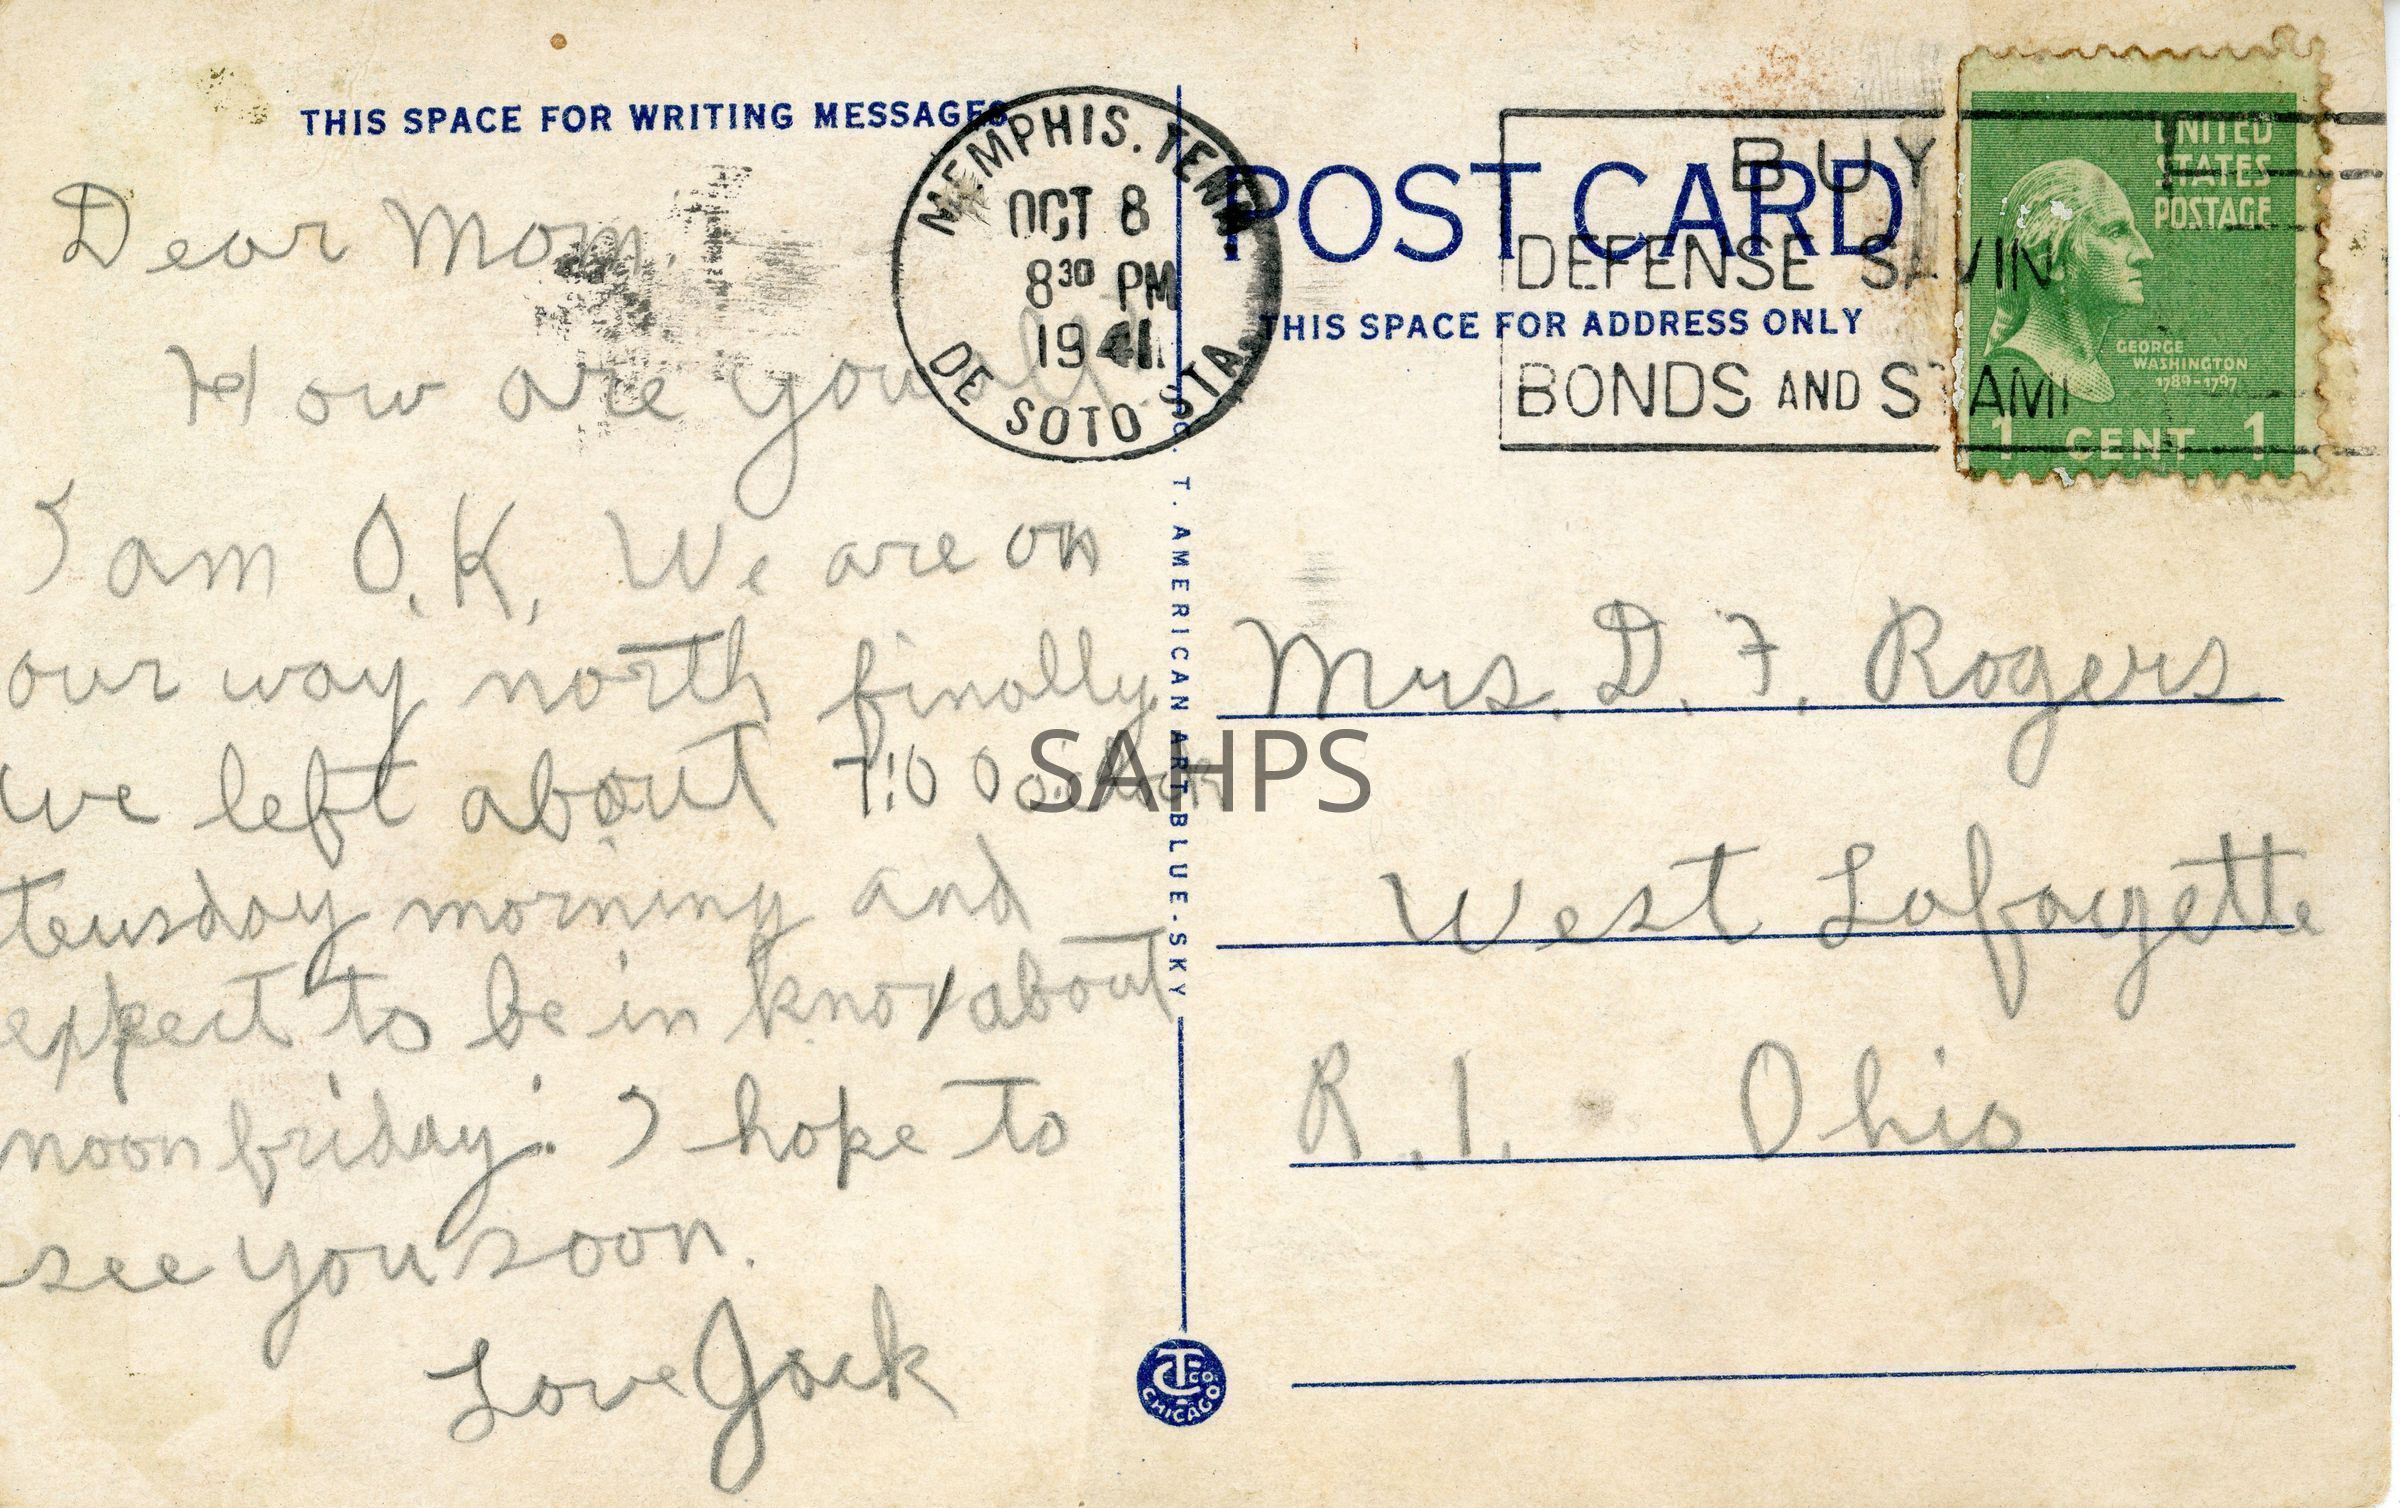 THIS SPACE FOR WRITING MESSAGES
Dear Mom,
How are you all.
I am O.K. We are on
our way north finally
we left about 7:00 oclock
teusday morning and
expect to be in knox about
noon friday. I hope to
see you soon.
Love Jack
MEMPHIS. TENN.
OCT 8
8 30 PM
1941
DE SOTO STA.
C. T. AMERICAN ART BLUE-SKY
SAHPS
POST CARD
THIS SPACE FOR ADDRESS ONLY
BUY
DEFENSE SAVIN
BONDS AND STAMP
UNITED
STATES
POSTAGE
GEORGE
WASHINGTON
1789-1797
1 CENT 1
Mrs. D. F. Rogers
West Lafayette
R. 1. Ohio
CT CO.
CHICAGO